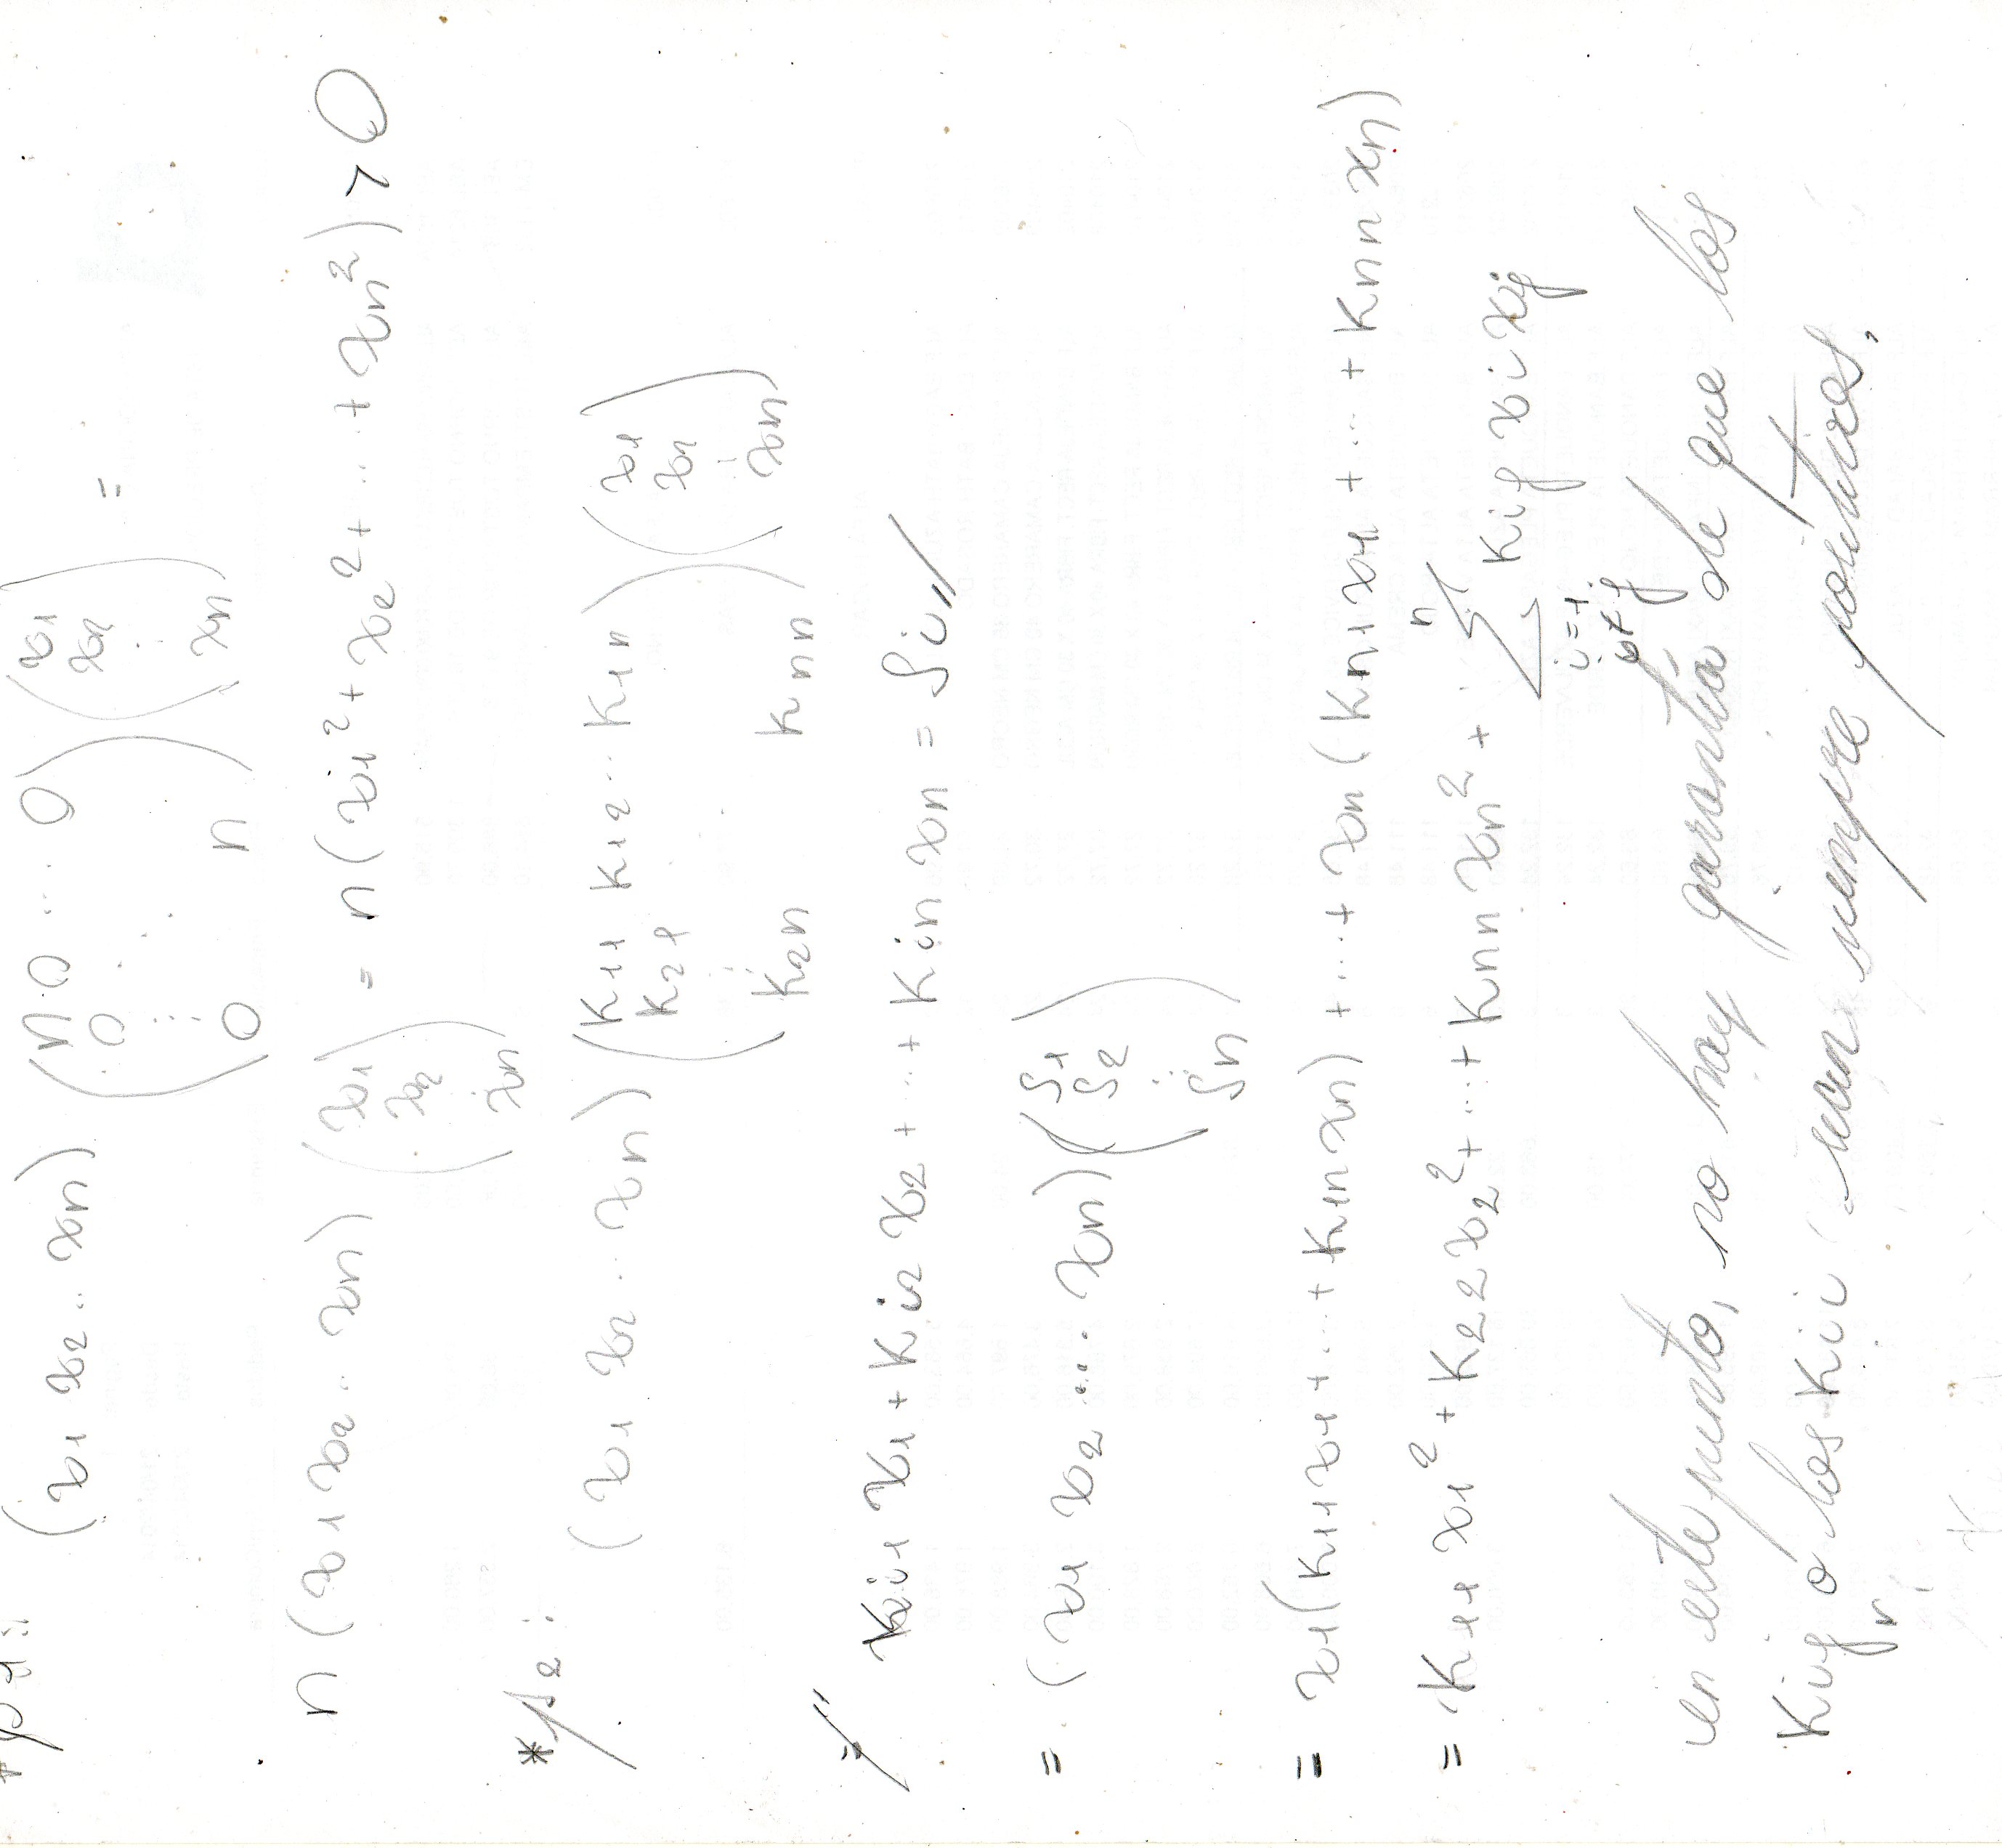 * p1:
(x1 x2 .. xn) (n 0 .. 0 0 ⋮ 0 n) (x1 x2 ⋮ xn) =
n (x1 x2 .. xn) (x1 x2 xn) = n (x1² + x2² + ... + xn²) > 0
* p2:
(x1 x2 .. xn) (K11 K12 ... K1n K21 ⋮ K2n Knn) (x1 x2 ⋮ xn)
Ki1 x1 + Ki2 x2 + ... + Kin xn = Si //
= (x1 x2 .... xn) (S1 S2 ⋮ Sn)
= x1 (K11 x1 + ... + K1n xn) + .... + xn (Kn1 x1 + ... + Knn xn)
= K11 x1² + K22 x2² + ... + Knn xn² + ∑ n i=1 i≠j Kij xi xj
en este punto, no hay garantía de que los
Kij o los Kii sean siempre positivos.